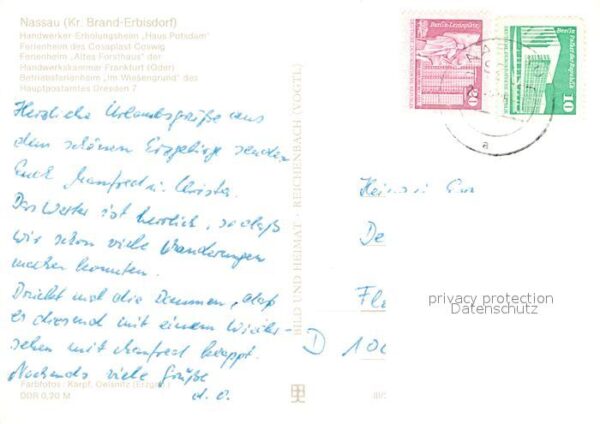 Nassau (Kr. Brand-Erbisdorf)
Handwerker-Erholungsheim „Haus Potsdam"
Ferienheim des Cosaplast Coswig
Ferienheim „Altes Forsthaus" der
Handwerkskammer Frankfurt (Oder)
Betriebsferienheim „Im Wiesengrund" des
Hauptpostamtes Dresden 7
Herzliche Urlaubsgrüße aus
dem schönen Erzgebirge senden
Euch Manfred u. Christa.
Das Wetter ist herrlich, so daß
wir schon viele Wanderungen
machen konnten.
Drückt mal die Daumen, daß
es diesmal mit einem Wieder-
sehen mit Manfred klappt.
Nochmals viele Grüße
d. O.
Farbfotos: Karpf, Oelsnitz (Erzgeb.)
DDR 0,20 M
BILD UND HEIMAT · REICHENBACH (VOGTL)
Berlin-Leninplatz
20
Berlin, Palast der Republik
10
a
Heinz
De
Fl
D 100
privacy protection
Datenschutz